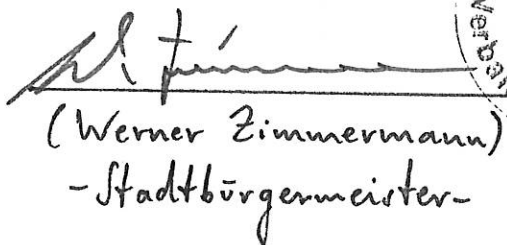 (Werner Zimmermann)
-Stadtbürgermeister-